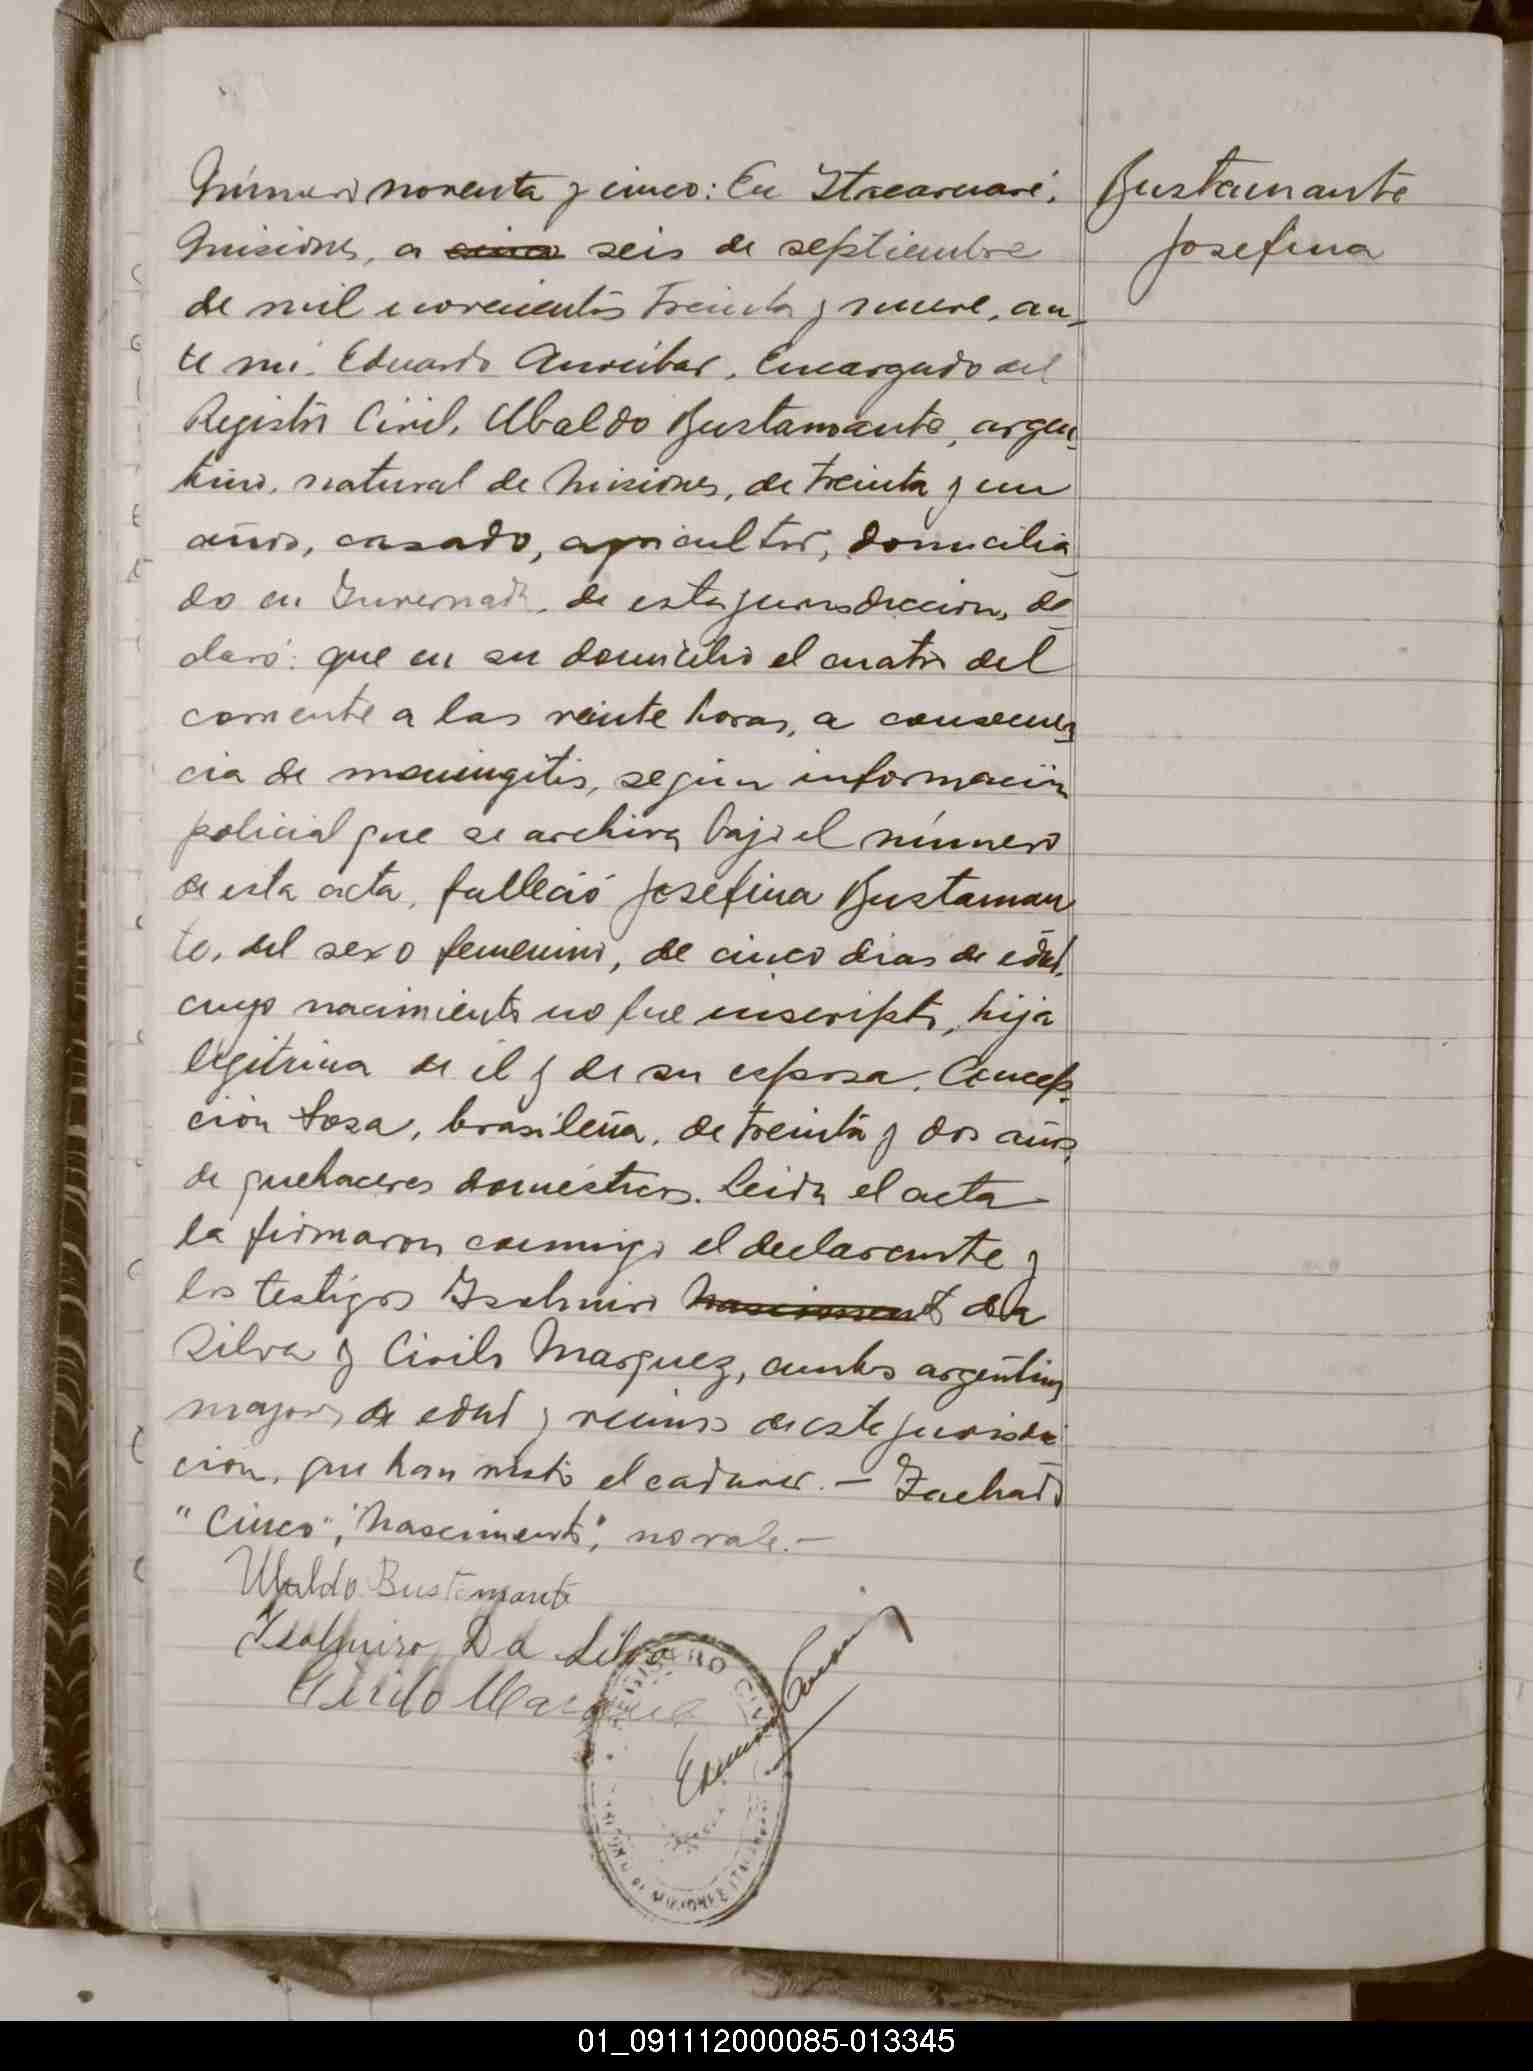 Número noventa y cinco: En Itacaruaré,
Misiones, a cinco seis de septiembre
de mil novecientos treinta y nueve, an-
te mí, Eduardo, Encargado del
Registro Civil, Ubaldo Bustamante, argen-
tino, natural de Misiones, de treinta y un
años, casado, agricultor, domicilia-
do en Invernada, de esta jurisdicción, de-
claró: que en su domicilio el cuatro del
corriente a las veinte horas, a consecuen-
cia de meningitis, según información
policial que se archiva bajo el número
de esta acta, falleció Josefina Bustaman-
te, del sexo femenino, de cinco dias de edad,
cuyo nacimiento no fue inscripto, hija
legitima de él y de su esposa, Concep-
ción Sosa, brasileña, de treinta y dos años,
de quehaceres domésticos. Leida el acta
la firmaron conmigo el declarante y
los testigos Isolmiro Nascimento da
Silva y Cirilo Marquez, ambos argentinos
mayores de edad y vecinos de esta jurisdic
ción, que han visto el cadaver. — Tachado
"Cinco", "Nascimento", no vale. —
Ubaldo Bustamante
Isolmiro Da Silva
Cirilo Marquez
Bustamante
Josefina
REGISTRO CIVIL
Eduardo
01_091112000085-013345